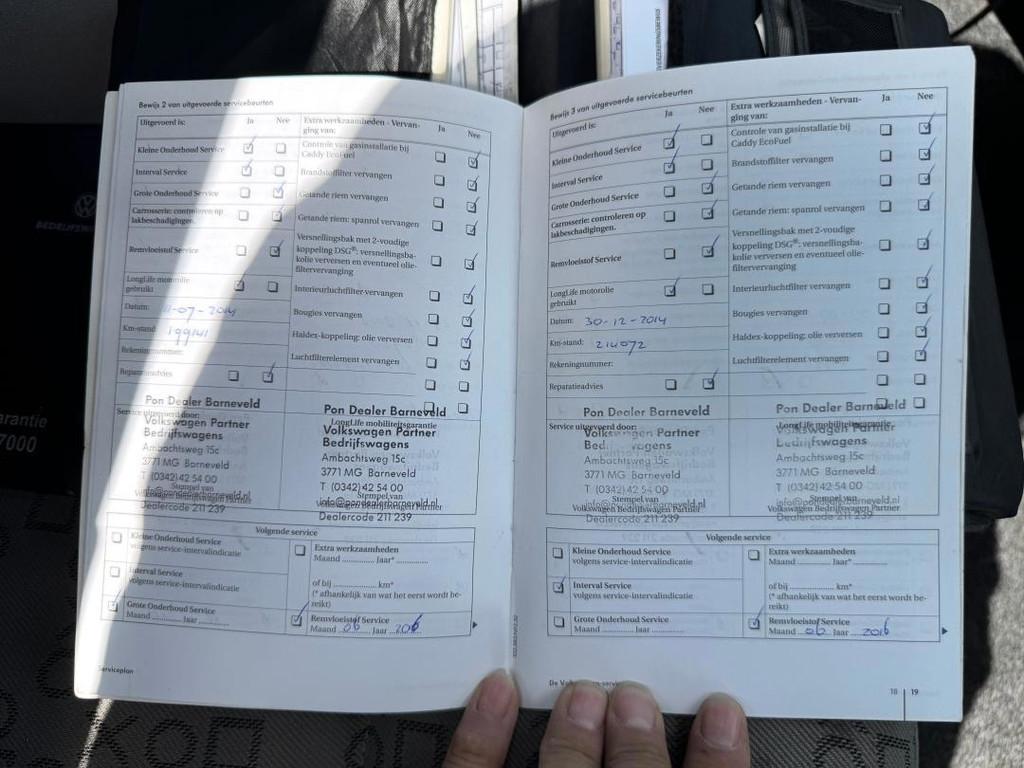 Bewijs 2 van uitgevoerde servicebeurten
Uitgevoerd is:
Ja
Nee
Kleine Onderhoud Service
Interval Service
Grote Onderhoud Service
Carrosserie: controleren op
lakbeschadigingen.
Remvloeistof Service
LongLife motorolie
gebruikt
Datum: 11-07-2014
Km-stand: 199141
Rekeningnummer:
Reparatieadvies
Extra werkzaamheden - Vervan-
ging van:
Ja
Nee
Controle van gasinstallatie bij
Caddy EcoFuel
Brandstoffilter vervangen
Getande riem vervangen
Getande riem: spanrol vervangen
Versnellingsbak met 2-voudige
koppeling DSG®: versnellingsba-
kolie verversen en eventueel olie-
filtervervanging
Interieurluchtfilter vervangen
Bougies vervangen
Haldex-koppeling: olie verversen
Luchtfilterelement vervangen
Service uitgevoerd door:
Pon Dealer Barneveld
Volkswagen Partner
Bedrijfswagens
Ambachtsweg 15c
3771 MG Barneveld
T (0342) 42 54 00
Stempel van
Volkswagen Bedrijfswagen Partner
Dealercode 211 239
LongLife mobiliteitsgarantie
Pon Dealer Barneveld
Volkswagen Partner
Bedrijfswagens
Ambachtsweg 15c
3771 MG Barneveld
T (0342) 42 54 00
Stempel van
info@pondealerbarneveld.nl
Volkswagen Bedrijfswagen Partner
Dealercode 211 239
Volgende service
Kleine Onderhoud Service
volgens service-intervalindicatie
Interval Service
volgens service-intervalindicatie
Grote Onderhoud Service
Maand ............ Jaar ............
Extra werkzaamheden
Maand ............ Jaar* ............
of bij ................ km*
(* afhankelijk van wat het eerst wordt be-
reikt)
Remvloeistof Service
Maand 06 Jaar 2016
Serviceplan
Bewijs 3 van uitgevoerde servicebeurten
Uitgevoerd is:
Ja
Nee
Kleine Onderhoud Service
Interval Service
Grote Onderhoud Service
Carrosserie: controleren op
lakbeschadigingen.
Remvloeistof Service
LongLife motorolie
gebruikt
Datum: 30-12-2014
Km-stand: 214072
Rekeningnummer:
Reparatieadvies
Extra werkzaamheden - Vervan-
ging van:
Ja
Nee
Controle van gasinstallatie bij
Caddy EcoFuel
Brandstoffilter vervangen
Getande riem vervangen
Getande riem: spanrol vervangen
Versnellingsbak met 2-voudige
koppeling DSG®: versnellingsba-
kolie verversen en eventueel olie-
filtervervanging
Interieurluchtfilter vervangen
Bougies vervangen
Haldex-koppeling: olie verversen
Luchtfilterelement vervangen
Service uitgevoerd door:
Pon Dealer Barneveld
Volkswagen Partner
Bedrijfswagens
Ambachtsweg 15c
3771 MG Barneveld
T (0342) 42 54 00
Stempel van
Volkswagen Bedrijfswagen Partner
Dealercode 211 239
LongLife mobiliteitsgarantie
Pon Dealer Barneveld
Volkswagen Partner
Bedrijfswagens
Ambachtsweg 15c
3771 MG Barneveld
T (0342) 42 54 00
Stempel van
info@pondealerbarneveld.nl
Volkswagen Bedrijfswagen Partner
Dealercode 211 239
Volgende service
Kleine Onderhoud Service
volgens service-intervalindicatie
Interval Service
volgens service-intervalindicatie
Grote Onderhoud Service
Maand ............ Jaar ............
Extra werkzaamheden
Maand ............ Jaar* ............
of bij ................ km*
(* afhankelijk van wat het eerst wordt be-
reikt)
Remvloeistof Service
Maand 06 Jaar 2016
18 | 19
arantie
7000